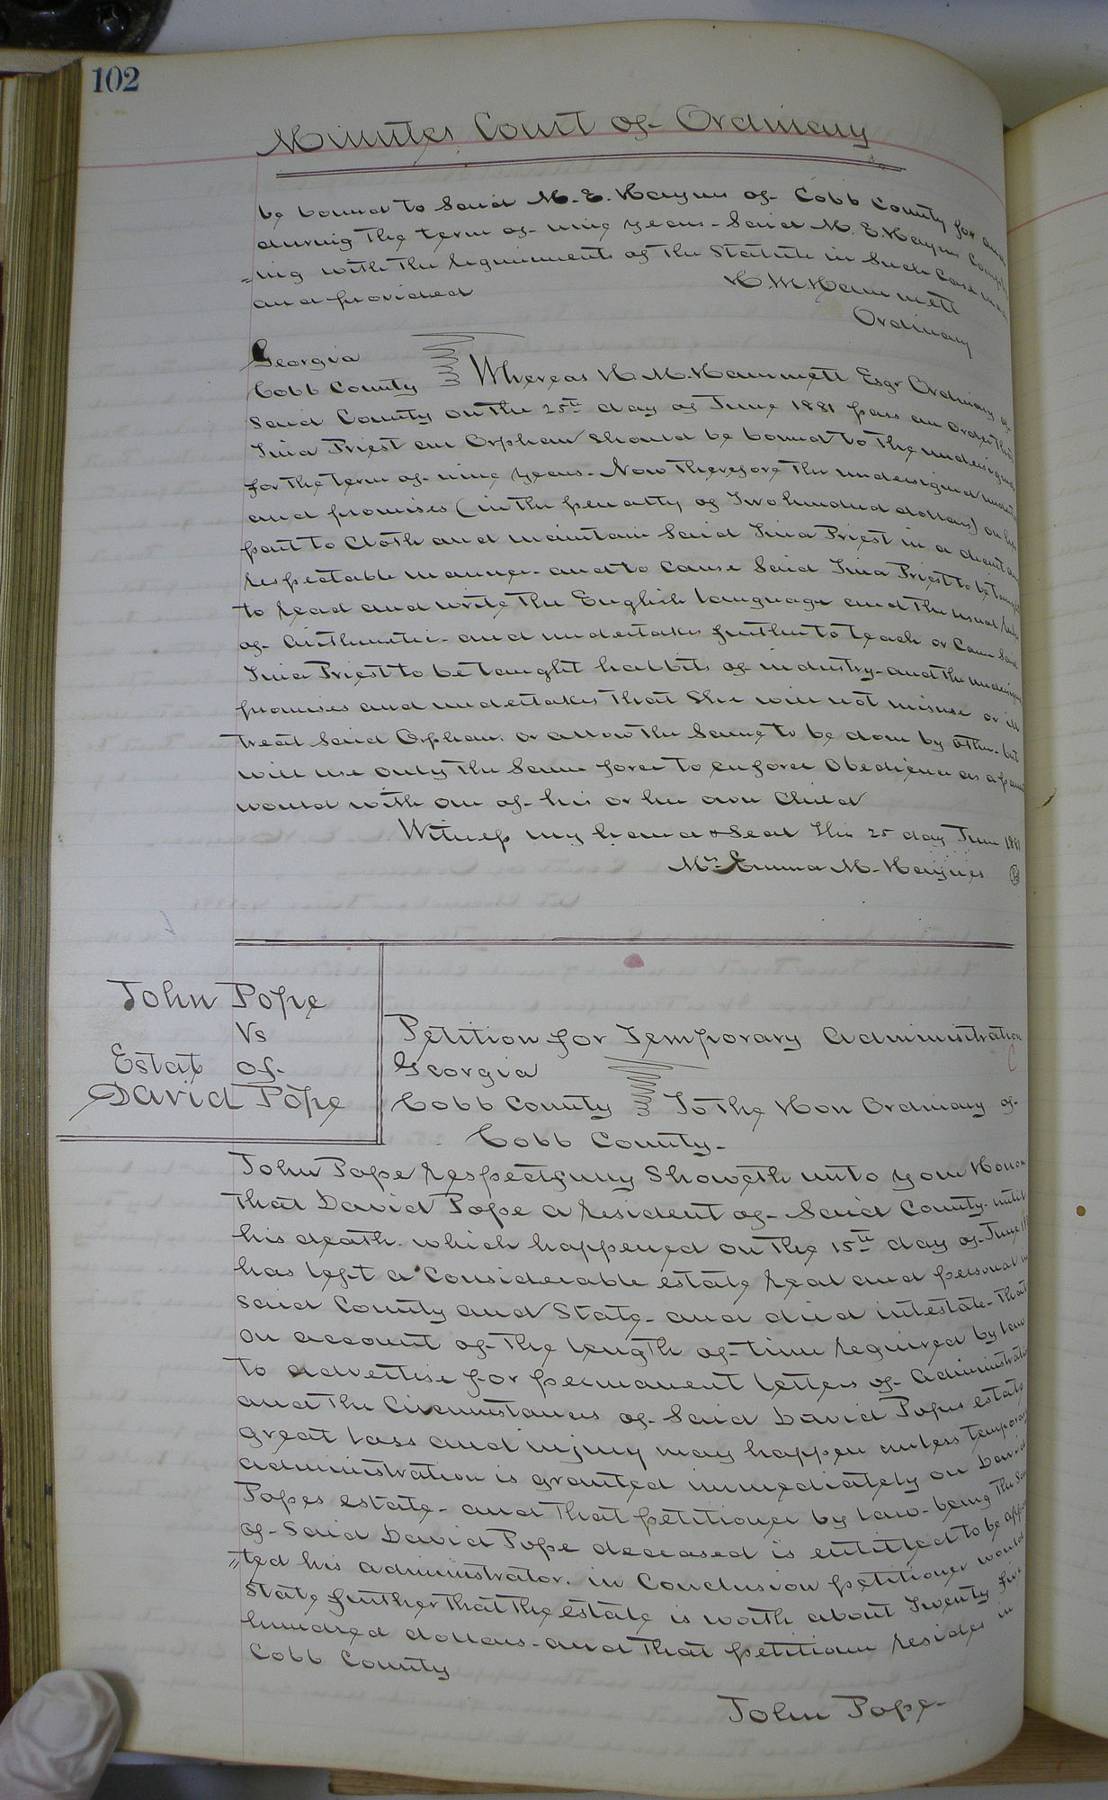 102
Minutes Court of Ordinary
be bound to Said M. E. Haynes of Cobb County for and
during the term of nine years - Said M. E. Haynes Comply
=ing with the requirements of the Statute in Such Case made
and provided H. M. Hammett
Ordinary
Georgia
Cobb County Whereas H. M. Hammett Esqr Ordinary of
Said County on the 25th day of June 1881 pass an order that
Priest an Orphan Should be bound to the undersigned
for the term of nine years - Now Therefore the undersigned
and promises (in the penalty of Two hundred dollars) on her
part to Cloth and maintain Said Priest in a decent and
respectable manner - and to cause Said Priest to be taught
to read and write the English Language and the usual rules
of Arithmetic - and undertakes further to teach or Cause Said
Priest to be taught habbits of industry - and the undersigned
promises and undertakes that She will not misuse or ill
treat Said Orphan or allow the Same to be done by other - but
will use only the Same force to enforce Obedience as a parent
would with one of his or her own Child
Witness my hand & Seal this 25 day June 1881
Mrs Emma M. Haynes
John Pope
Vs
Estate of
David Pope
Petition for Temporary Administration
Georgia
Cobb County To The Hon Ordinary of
Cobb County -
John Pope respectfully Showeth unto your Honor
that David Pope a resident of Said County - until
his death - which happened on the 15th day of June
has left a Considerable estate real and personal in
Said County and State - and died intestate - That
on account of the length of time required by law
to advertise for permanent Letters of Administration
and the Circumstances of Said David Popes estate
great loss and injury may happen unless temporary
administration is granted immediately on David
Popes estate - and that petitioner by law - being the Son
of Said David Pope deceased is entitled to be appoin
=ted his administrator. in Conclusion petitioner would
State further that the estate is worth about Twenty five
hundred dollars - and that petitioner resides in
Cobb County
John Pope -